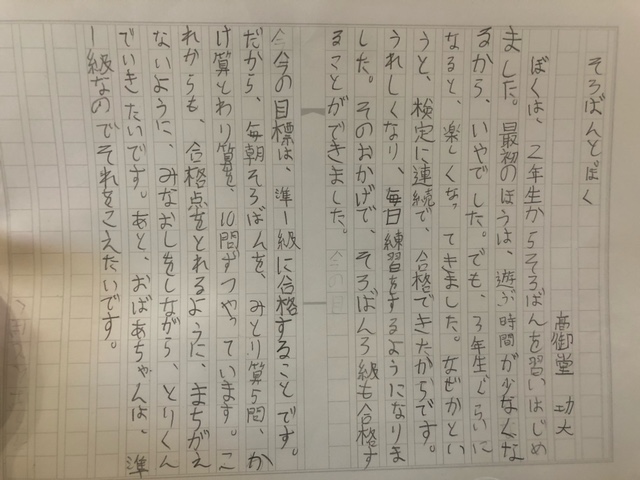 そろばんとぼく
高御堂 功大
ぼくは、2年生からそろばんを習いはじめ
ました。最初のほうは、遊ぶ時間が少なくな
るから、いやでした。でも、3年生ぐらいに
なると、楽しくなってきました。なぜかとい
うと、検定に連続で、合格できたからです。
うれしくなり、毎日練習をするようになりま
した。そのおかげで、そろばん3級も合格す
ることができました。
今の目標は、準1級に合格することです。
だから、毎朝そろばんを、みとり算5問、か
け算とわり算を、10問ずつやっています。こ
れからも、合格点をとれるように、まちがえ
ないように、みなおしをしながら、とりくん
でいきたいです。あと、おばあちゃんは、準
1級なのでそれをこえたいです。